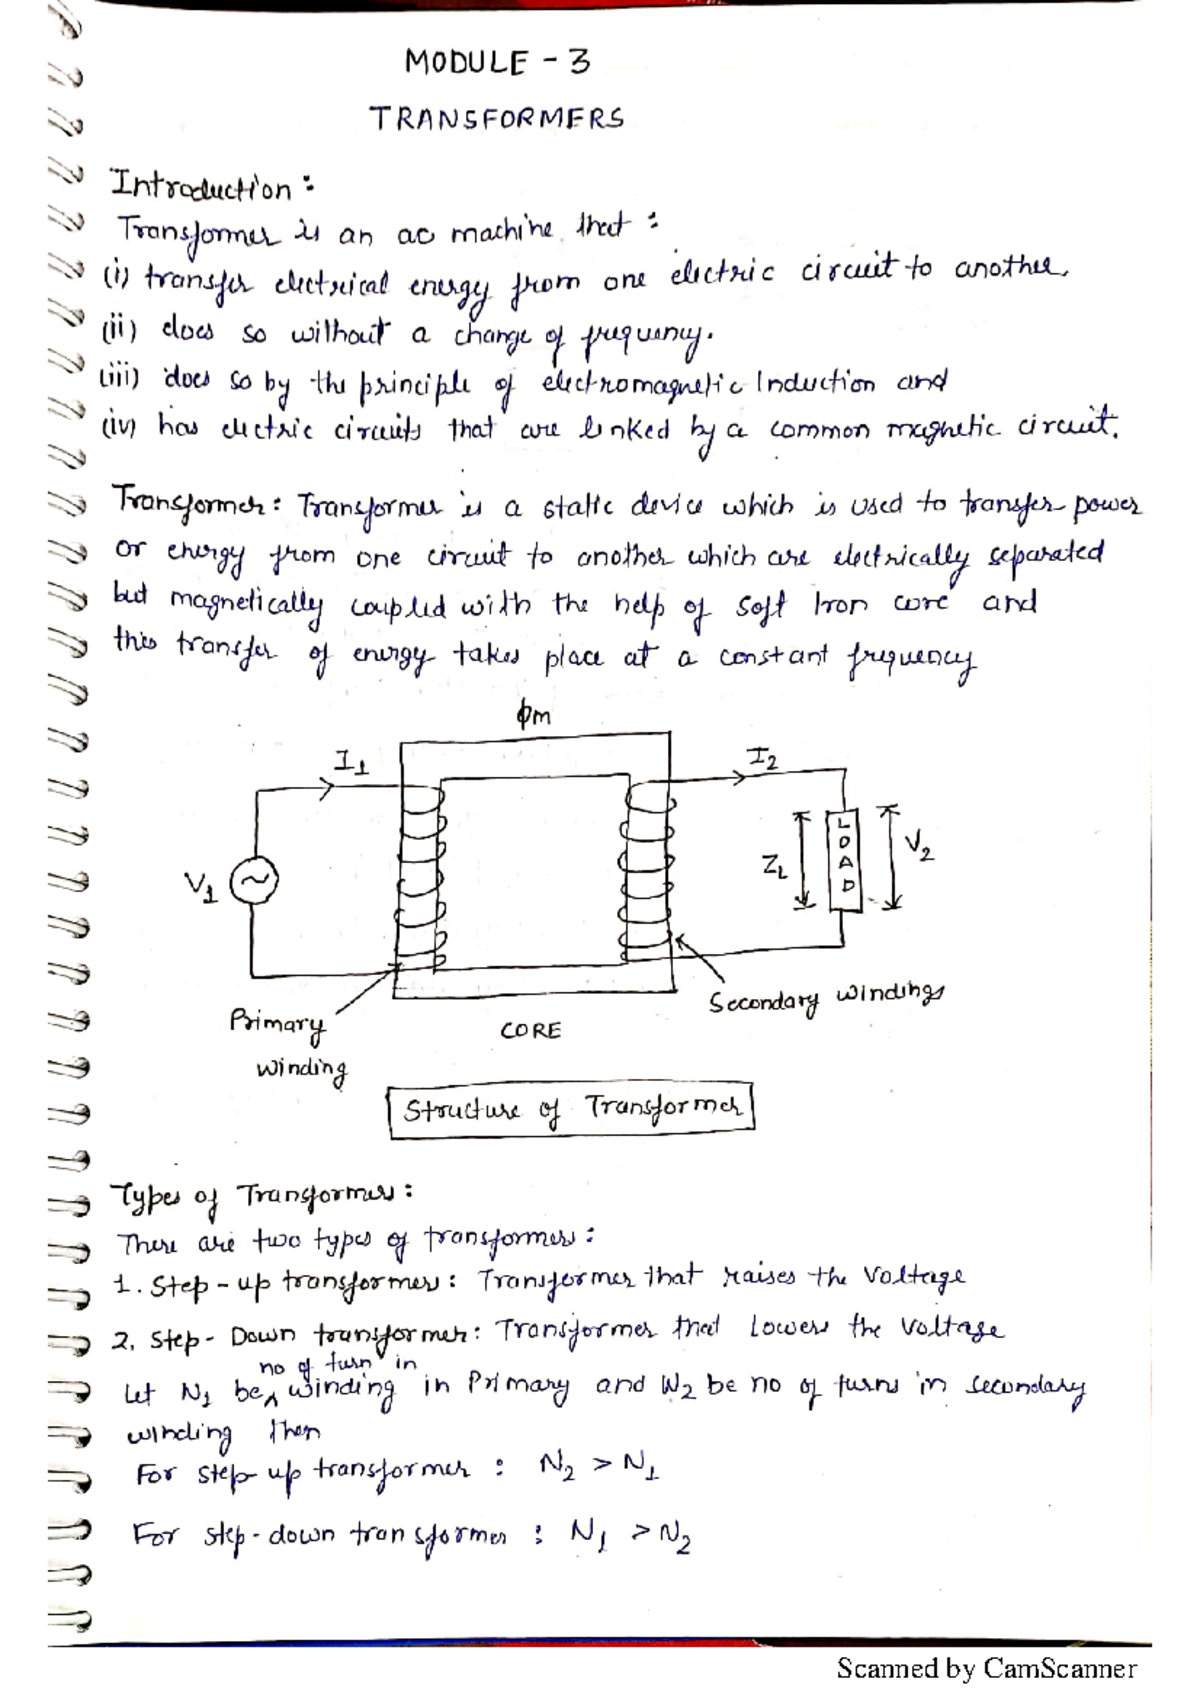 MODULE - 3
TRANSFORMERS
Introduction :
Transformer is an ac machine that :
(i) transfer electrical energy from one electric circuit to another.
(ii) does so without a change of frequency.
(iii) does so by the principle of electromagnetic Induction and
(iv) has electric circuits that are linked by a common magnetic circuit.
Transformer : Transformer is a static device which is used to transfer power
or energy from one circuit to another which are electrically separated
but magnetically coupled with the help of soft Iron core and
this transfer of energy takes place at a constant frequency
ϕm
I1
I2
V1
ZL
LOAD
V2
Primary
winding
CORE
Secondary windings
Structure of Transformer
Types of Transformers :
There are two types of transformers :
1. Step-up transformers : Transformer that raises the Voltage
2. Step-Down transformer : Transformer that Lowers the Voltage
no of turn in
Let N1 be ^ winding in Primary and N2 be no of turns in secondary
winding then
For step-up transformer : N2 > N1
For step-down transformer : N1 > N2
Scanned by CamScanner